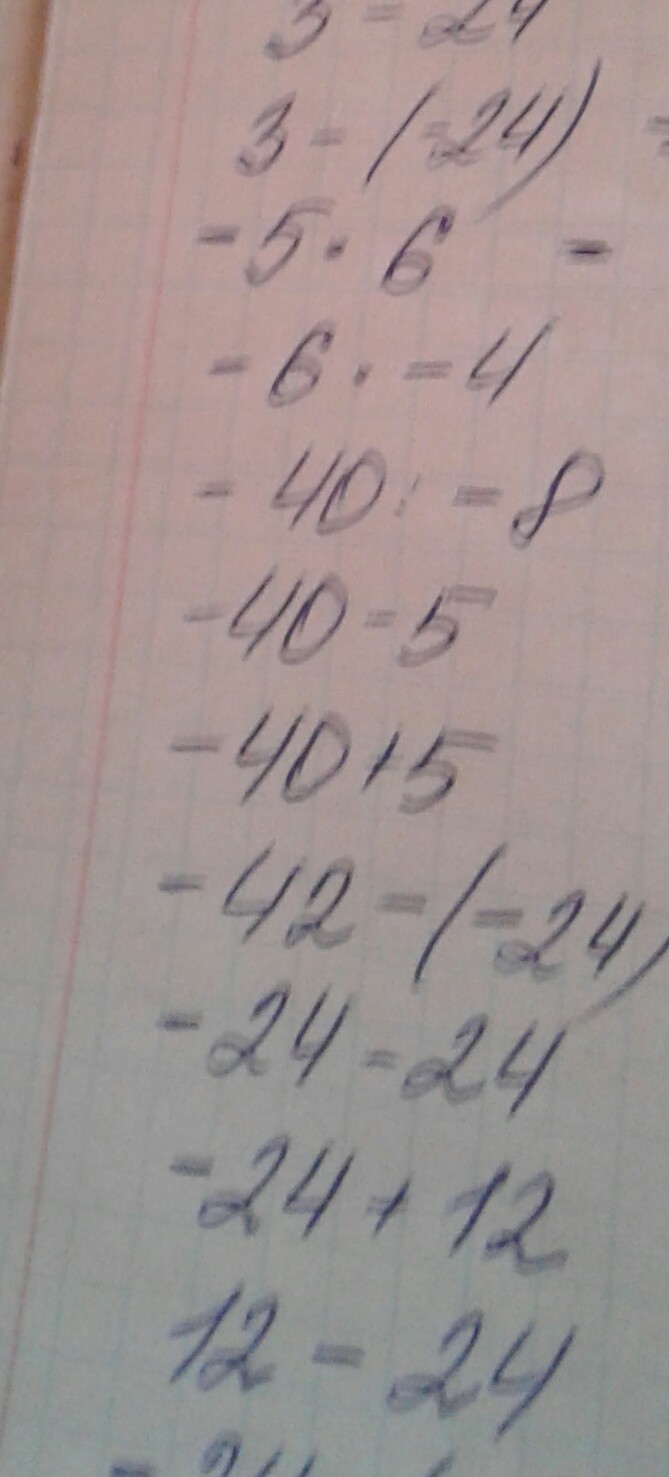 3 - 24
3 - (-24) =
-5 · 6 -
-6 · -4
-40 : -8
-40 - 5
-40 + 5
-42 - (-24)
-24 - 24
-24 + 12
12 - 24